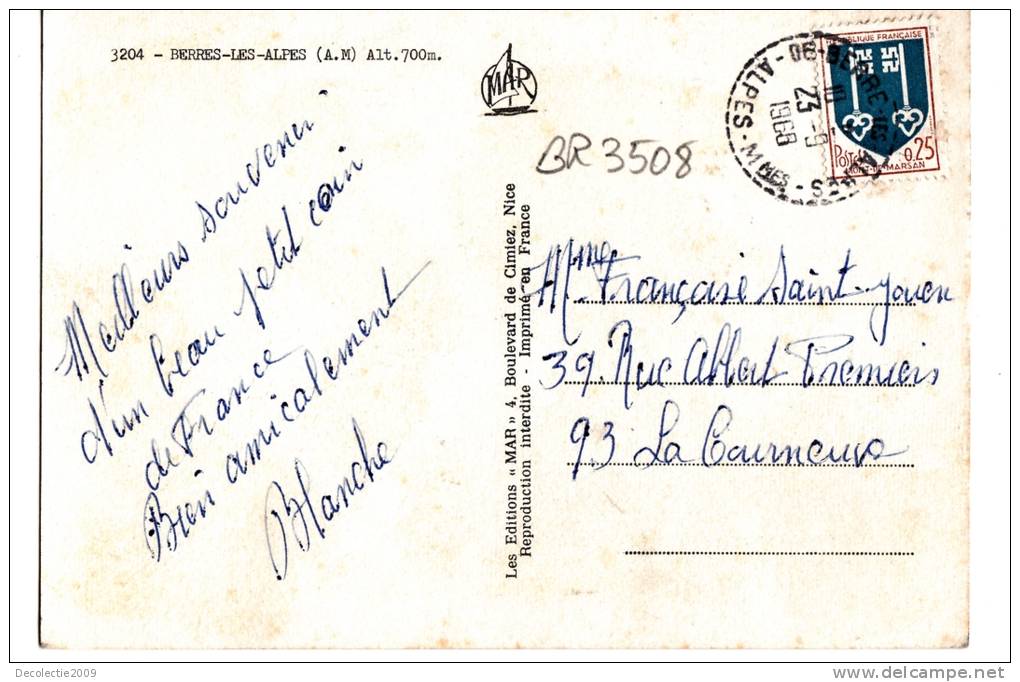 3204 - BERRES-LES-ALPES (A.M) Alt.700m.
MAR
BR3508
RÉPUBLIQUE FRANÇAISE
POSTES 0.25
MONT-DE-MARSAN
06-BERRE-LES-ALPES
ALPES-MMES
23 -9
1968
Meilleurs souvenir
d'un beau petit coin
de France
Bien amicalement
Blanche
Les Editions « MAR » 4, Boulevard de Cimiez, Nice
Reproduction interdite - Imprimé en France
Mme Françoise Saint-Youen
39 Rue Albert Premiers
93 La Courneuve
Decolectie2009
www.delcampe.net